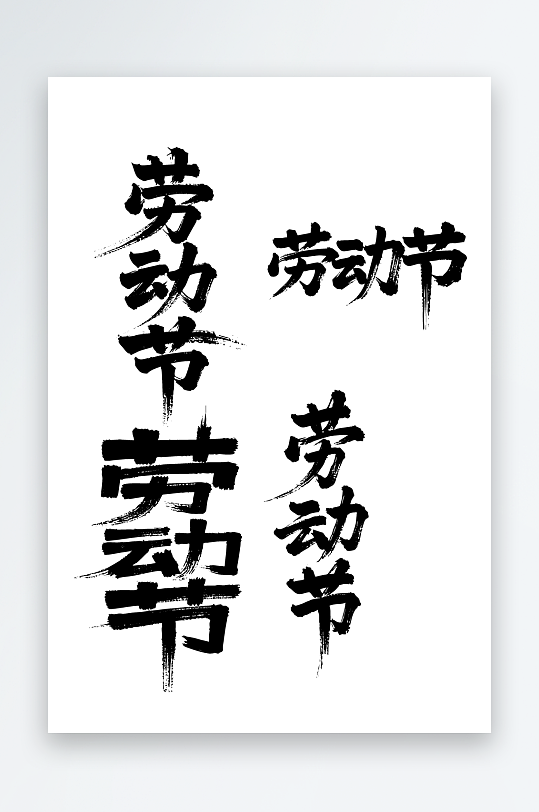 劳动节
劳动节
劳动节
劳动节